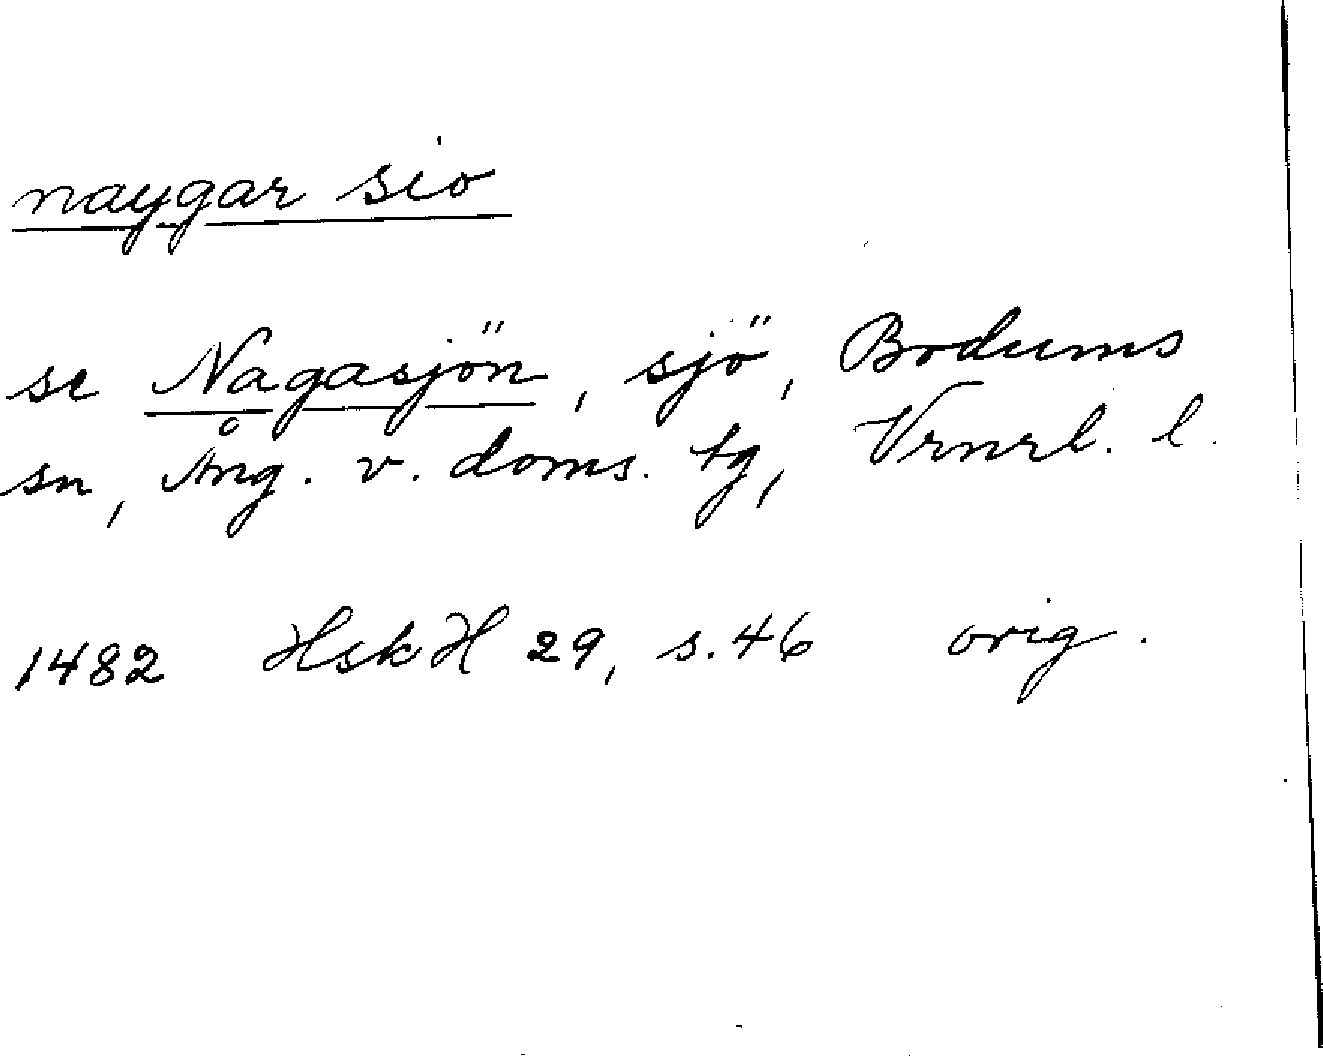 naygar sio
se Nagasjön, sjö, Bodums
sn, Ång. v. doms. tg, Vrnrl. l.
1482 HskH 29, s. 46 orig.